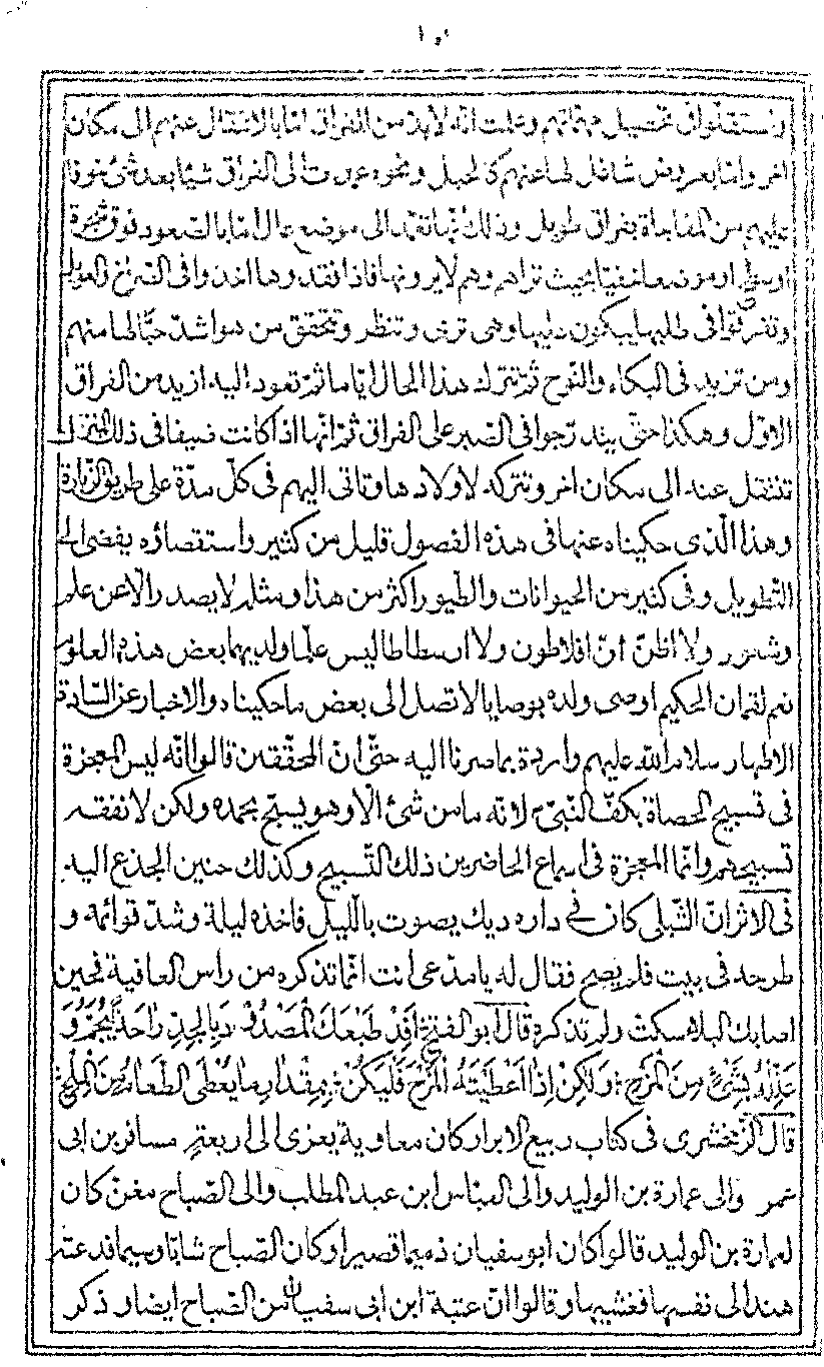 ويستقلوا في تحصيل مهماتهم وعلمت انه لابد من الفراق امّا بالانتقال عنهم الى مكان
اخر وامّا بعروض شاغل لها عنهم كالحبل ونحوه عودت الى الفراق شيئا بعد شئ خوفا
عليهم من المفاجاة بفراق طويل وذلك انّها تعمد الى موضع عال امّا بالصعود فوق شجرة
او سطح او موضعا خفيا بحيث تراهم وهم لا يرونها فاذا فقدوها اخذوا في الصراخ والعويل
وتفرقوا في طلبها يبكون عليها وهى ترى وتنظر وتتحقق من هو اشدّ حبّا لها منهم
ومن تزيد في البكاء والنوح ثمّ تترك هذا الحال ايّاما ثمّ تعود اليه ازيد من الفراق
الاوّل وهكذا حتّى يتدرّجوا في الصبر على الفراق ثمّ انّها اذا كانت ضيفا في ذلك المنزل
تنتقل عنه الى مكان اخر وتتركه لاولادها وتاتى اليهم في كلّ مدّة على طريق الزّيارة
وهذا الّذى حكيناه عنها في هذه الفصول قليل من كثير واستقصاؤه يفضى الى
التّطويل وفي كثير من الحيوانات والطّيور اكثر من هذا ومثله لا يصدر الّا عن علم
وشعور ولا اظنّ انّ افلاطون ولا ارسطاطاليس علّما ولديهما بعض هذه العلوم
نعم لقمان الحكيم اوصى ولده بوصايا لا تصل الى بعض ما حكيناه والاخبار عن السّادة
الاطهار سلام الله عليهم واردة بما صرنا اليه حتّى انّ المحقّقين قالوا انّه ليس المعجزة
في تسبيح الحصاة بكفّ النّبىّ ص لانّه ما من شئ الّا وهو يسبّح بحمده ولكن لا نفقه
تسبيحهم وانّما المعجزة في اسماع الحاضرين ذلك التّسبيح وكذلك حنين الجذع اليه
في الاثر انّ الشّبلى كان في داره ديك يصوت بالّليل فاخذه ليلة وشدّ قوائمه و
طرحه في بيت فلم يصح فقال له يا مدّعى انت انّما تذكره من راس العافية فحين
اصابك البلاء سكتّ ولم تذكره قال ابو الفتح افد طبعك المصدود بالجدّ راحة يجمّ و
علّله بشئ من المزح ولكن اذا اعطيته المزح فليكن بمقدار ما يعطى الطّعام من الملح
قال الزّمخشرى في كتاب ربيع الابرار كان معاوية يعزى الى اربعة مسافر بن ابى
عمر والى عمارة بن الوليد والى العبّاس ابن عبد المطلب والى الصّباح مغنّ كان
لعمارة بن الوليد قالوا كان ابو سفيان ذميما قصيرا وكان الصّباح شابّا وسيما فدعته
هند الى نفسها فغشيها وقالوا انّ عتبة ابن ابى سفيان من الصّباح ايضا وذكر